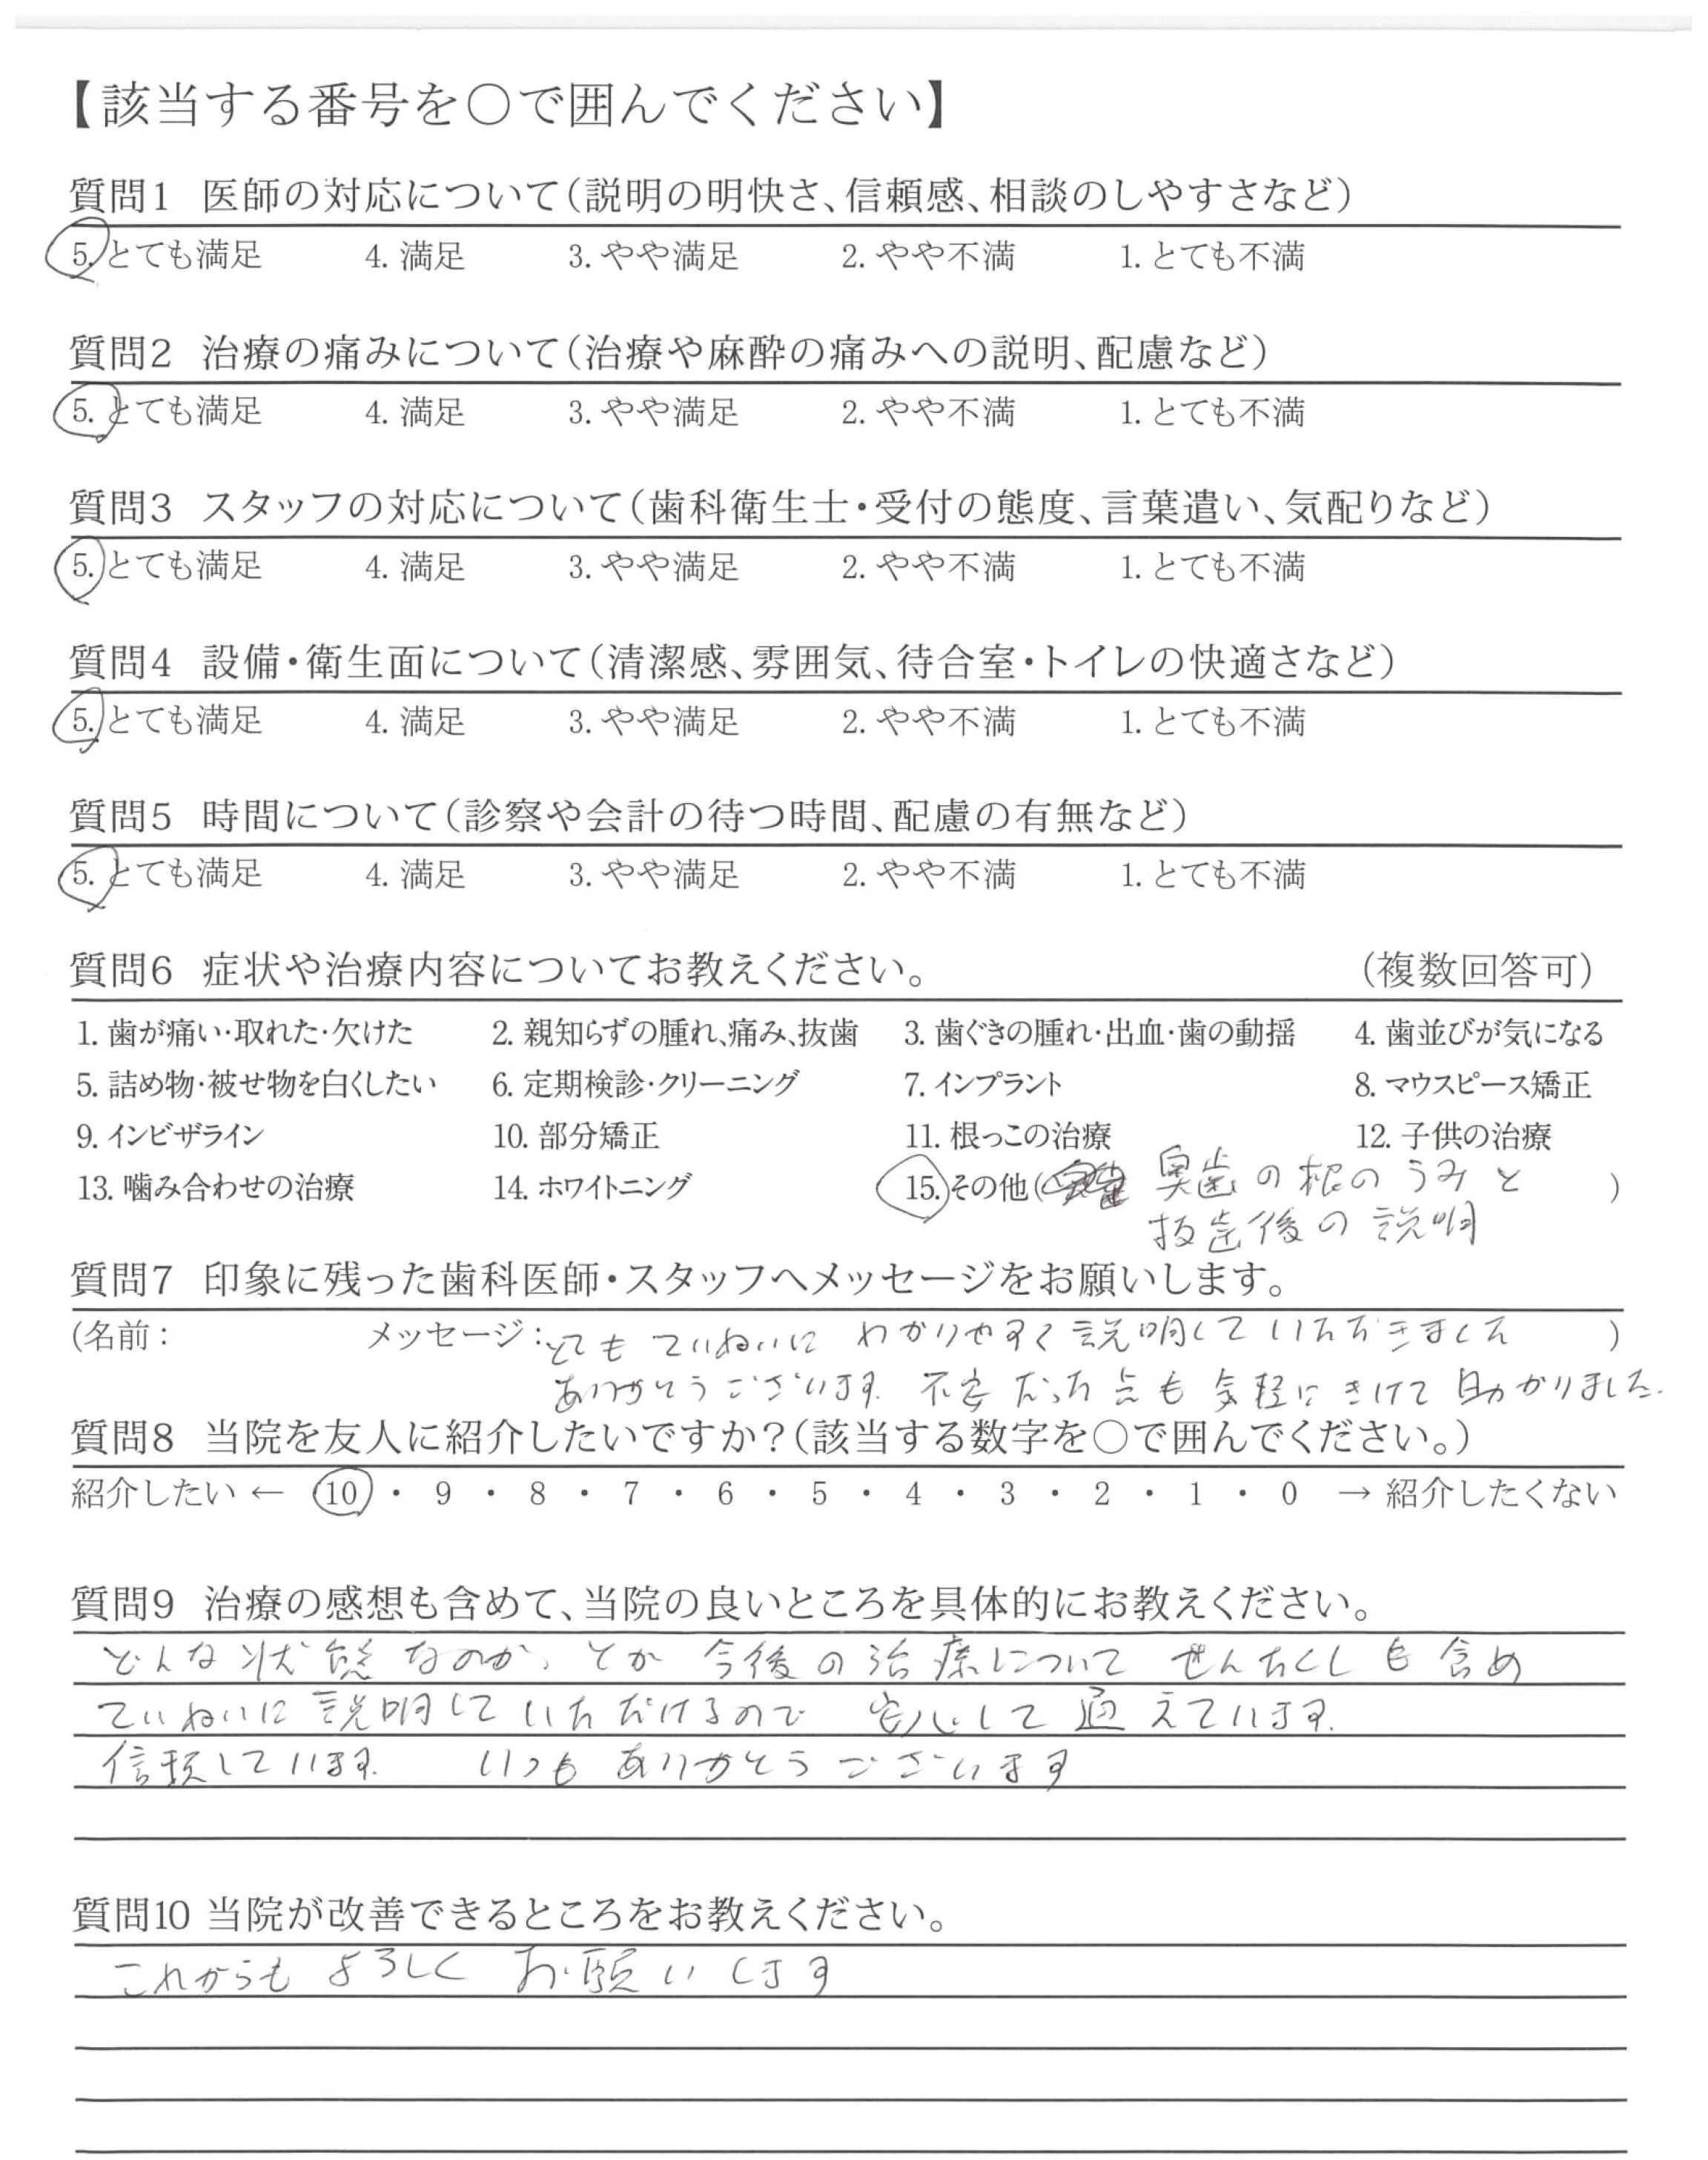 【該当する番号を〇で囲んでください】
質問1 医師の対応について(説明の明快さ、信頼感、相談のしやすさなど)
5. とても満足 4. 満足 3. やや満足 2. やや不満 1. とても不満
質問2 治療の痛みについて(治療や麻酔の痛みへの説明、配慮など)
5. とても満足 4. 満足 3. やや満足 2. やや不満 1. とても不満
質問3 スタッフの対応について(歯科衛生士・受付の態度、言葉遣い、気配りなど)
5. とても満足 4. 満足 3. やや満足 2. やや不満 1. とても不満
質問4 設備・衛生面について(清潔感、雰囲気、待合室・トイレの快適さなど)
5. とても満足 4. 満足 3. やや満足 2. やや不満 1. とても不満
質問5 時間について(診察や会計の待つ時間、配慮の有無など)
5. とても満足 4. 満足 3. やや満足 2. やや不満 1. とても不満
質問6 症状や治療内容についてお教えください。 (複数回答可)
1. 歯が痛い・取れた・欠けた 2. 親知らずの腫れ、痛み、抜歯 3. 歯ぐきの腫れ・出血・歯の動揺 4. 歯並びが気になる
5. 詰め物・被せ物を白くしたい 6. 定期検診・クリーニング 7. インプラント 8. マウスピース矯正
9. インビザライン 10. 部分矯正 11. 根っこの治療 12. 子供の治療
13. 噛み合わせの治療 14. ホワイトニング 15. その他( 奥歯の根のうみと )
抜歯後の説明
質問7 印象に残った歯科医師・スタッフへメッセージをお願いします。
(名前: メッセージ: とてもていねいに わかりやすく説明していただきました )
ありがとうございます。不安だった点も気軽にきけて助かりました。
質問8 当院を友人に紹介したいですか?(該当する数字を〇で囲んでください。)
紹介したい ← 10 ・ 9 ・ 8 ・ 7 ・ 6 ・ 5 ・ 4 ・ 3 ・ 2 ・ 1 ・ 0 → 紹介したくない
質問9 治療の感想も含めて、当院の良いところを具体的にお教えください。
どんな状態なのか、とか 今後の治療について せんたくしも含め
ていねいに説明していただけるので 安心して通えています。
信頼しています。 いつもありがとうございます
質問10 当院が改善できるところをお教えください。
これからもよろしくお願いします